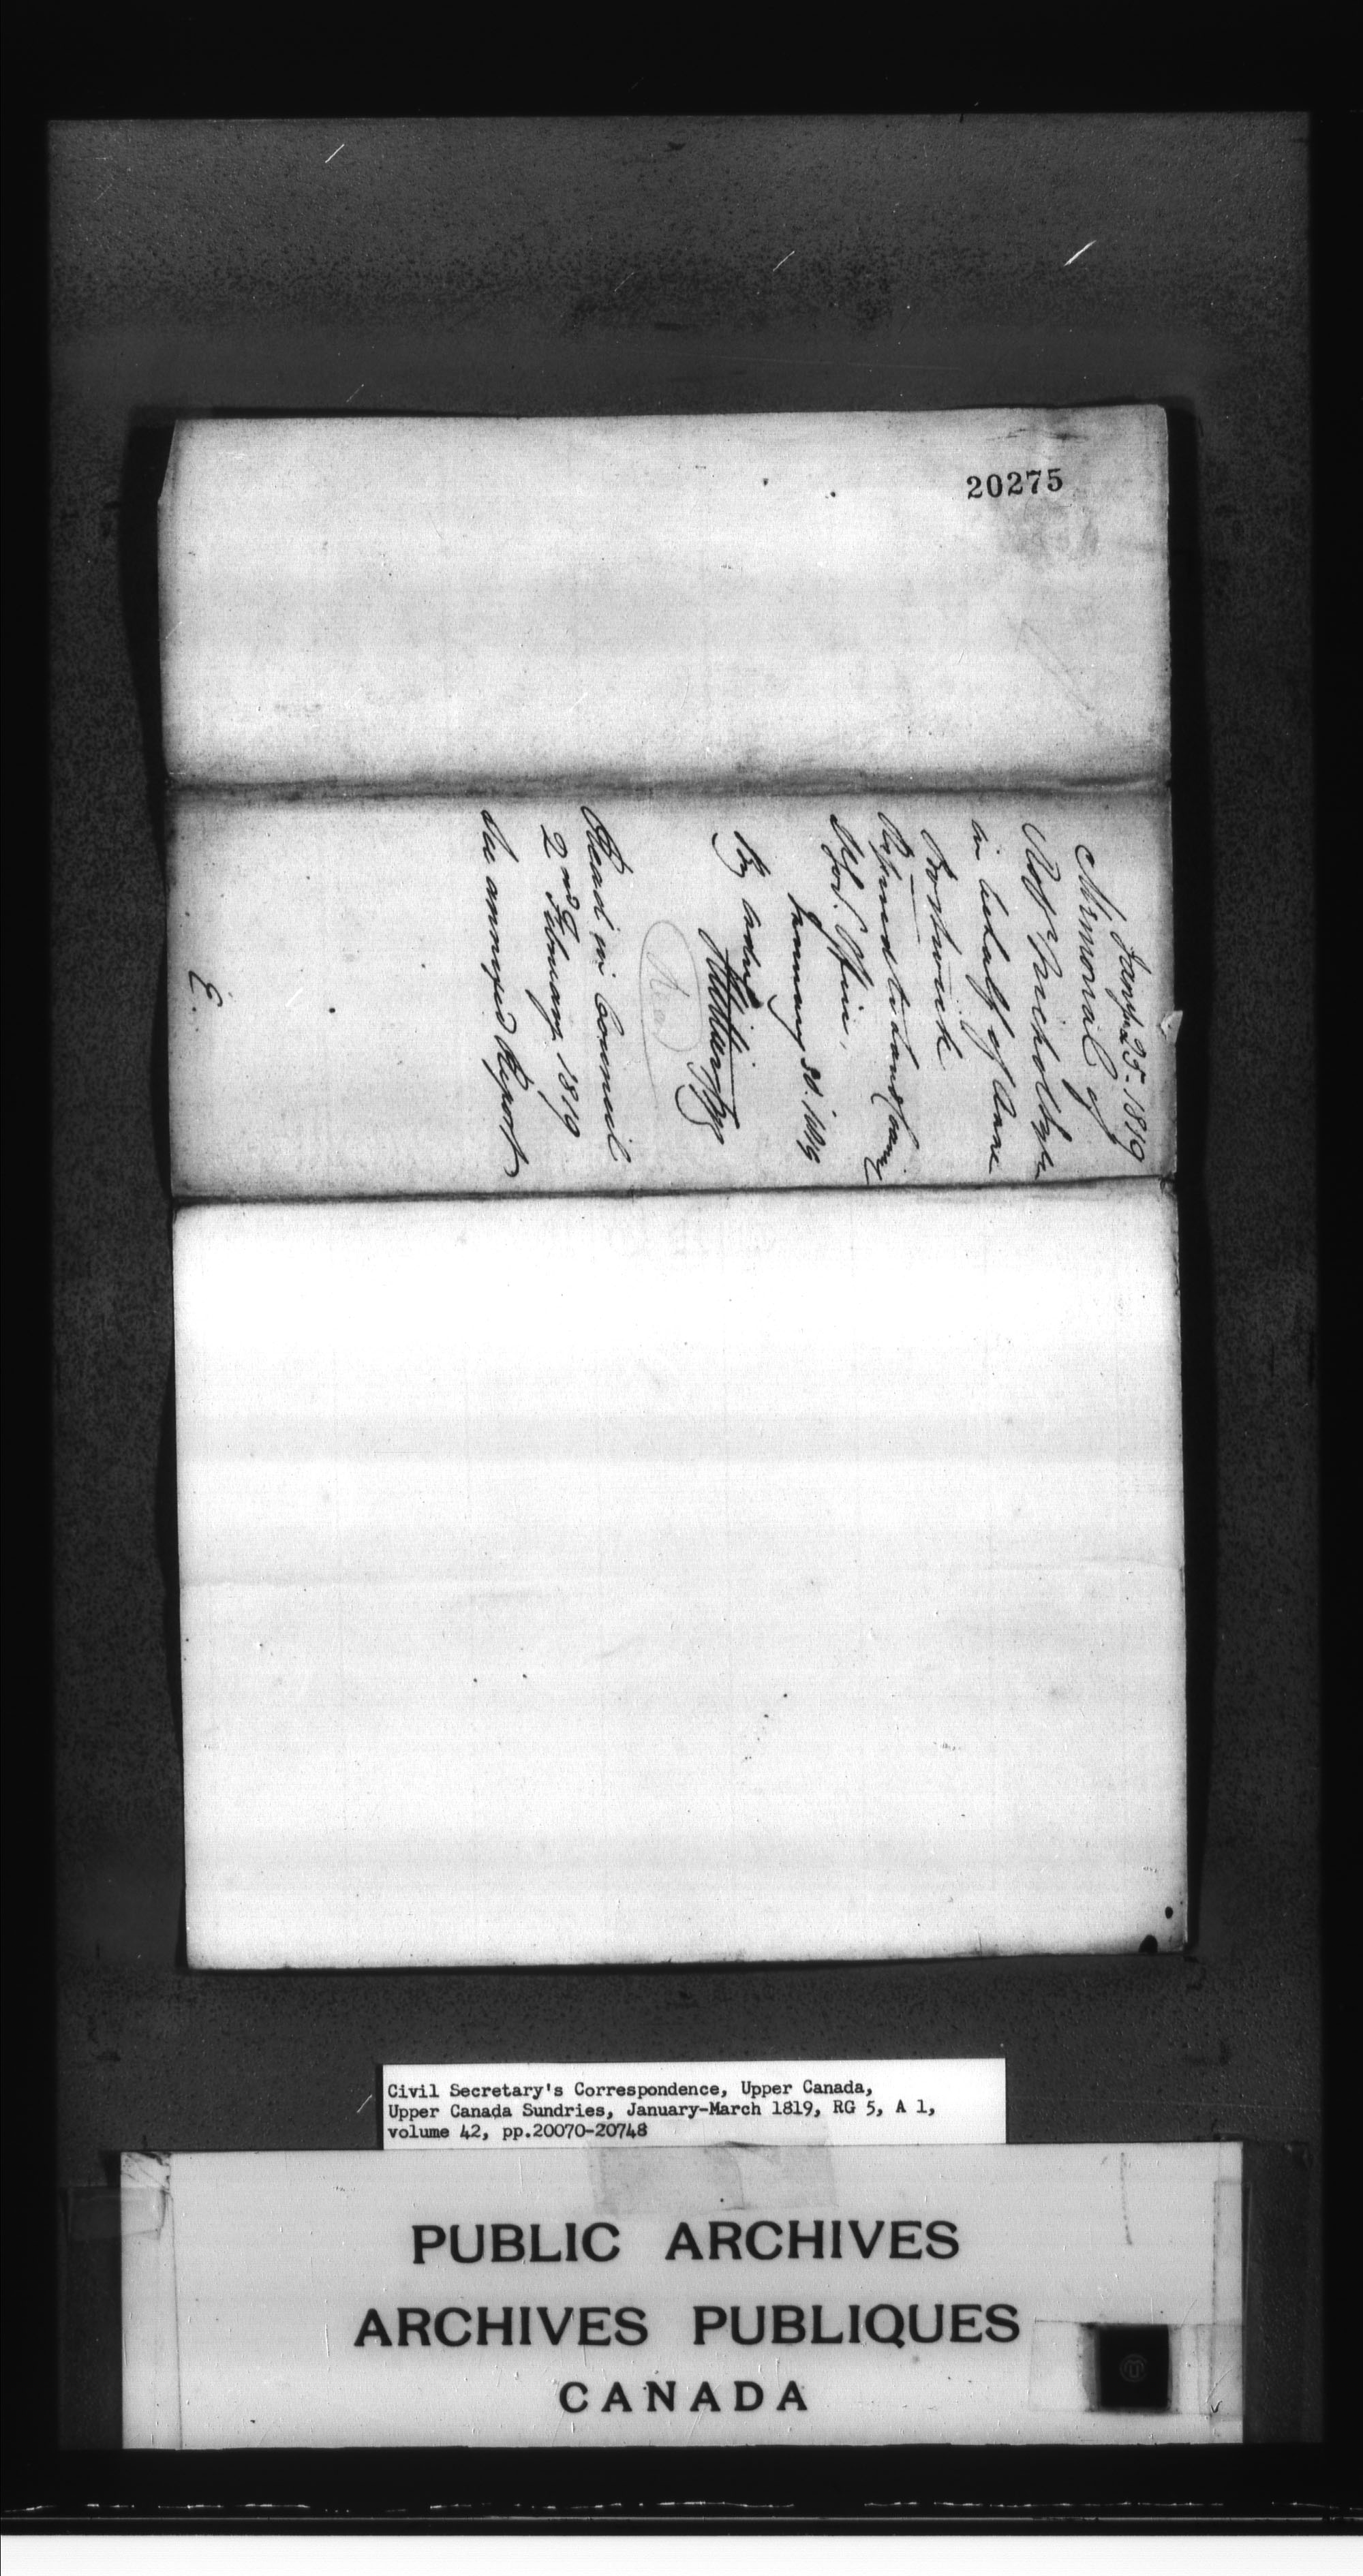 20275
Jany 25. 1819
Memorial of
Robt Nichol Esqr
in behalf of Anne
Bostwick
Referred to Land Council
Govt. Office,
January 30. 1819
By order
Read in Council
2nd February 1819
See annexed Report
E.
Civil Secretary's Correspondence, Upper Canada,
Upper Canada Sundries, January-March 1819, RG 5, A 1,
volume 42, pp.20070-20748
PUBLIC ARCHIVES
ARCHIVES PUBLIQUES
CANADA